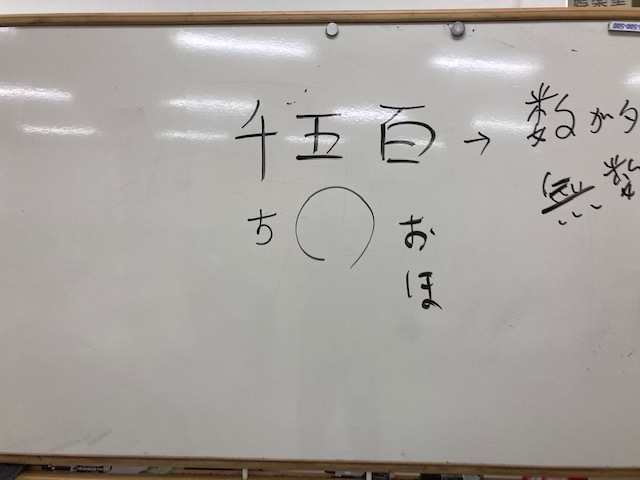 千五百 → 数が多
無数
ち〇 お
ほ